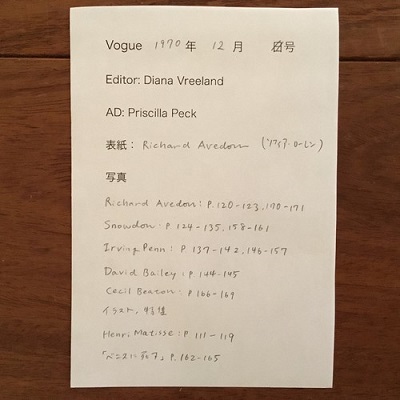 Vogue 1970 年 12 月 号
Editor: Diana Vreeland
AD: Priscilla Peck
表紙： Richard Avedon (ソフィア・ローレン)
写真
Richard Avedon: P.120-123, 170-171
Snowdon: P 124-135, 158-161
Irving Penn: P 137-142, 146-157
David Bailey: P.144-145
Cecil Beaton: P 166-169
イラスト, 特集
Henri Matisse: P 111-119
P.162-165